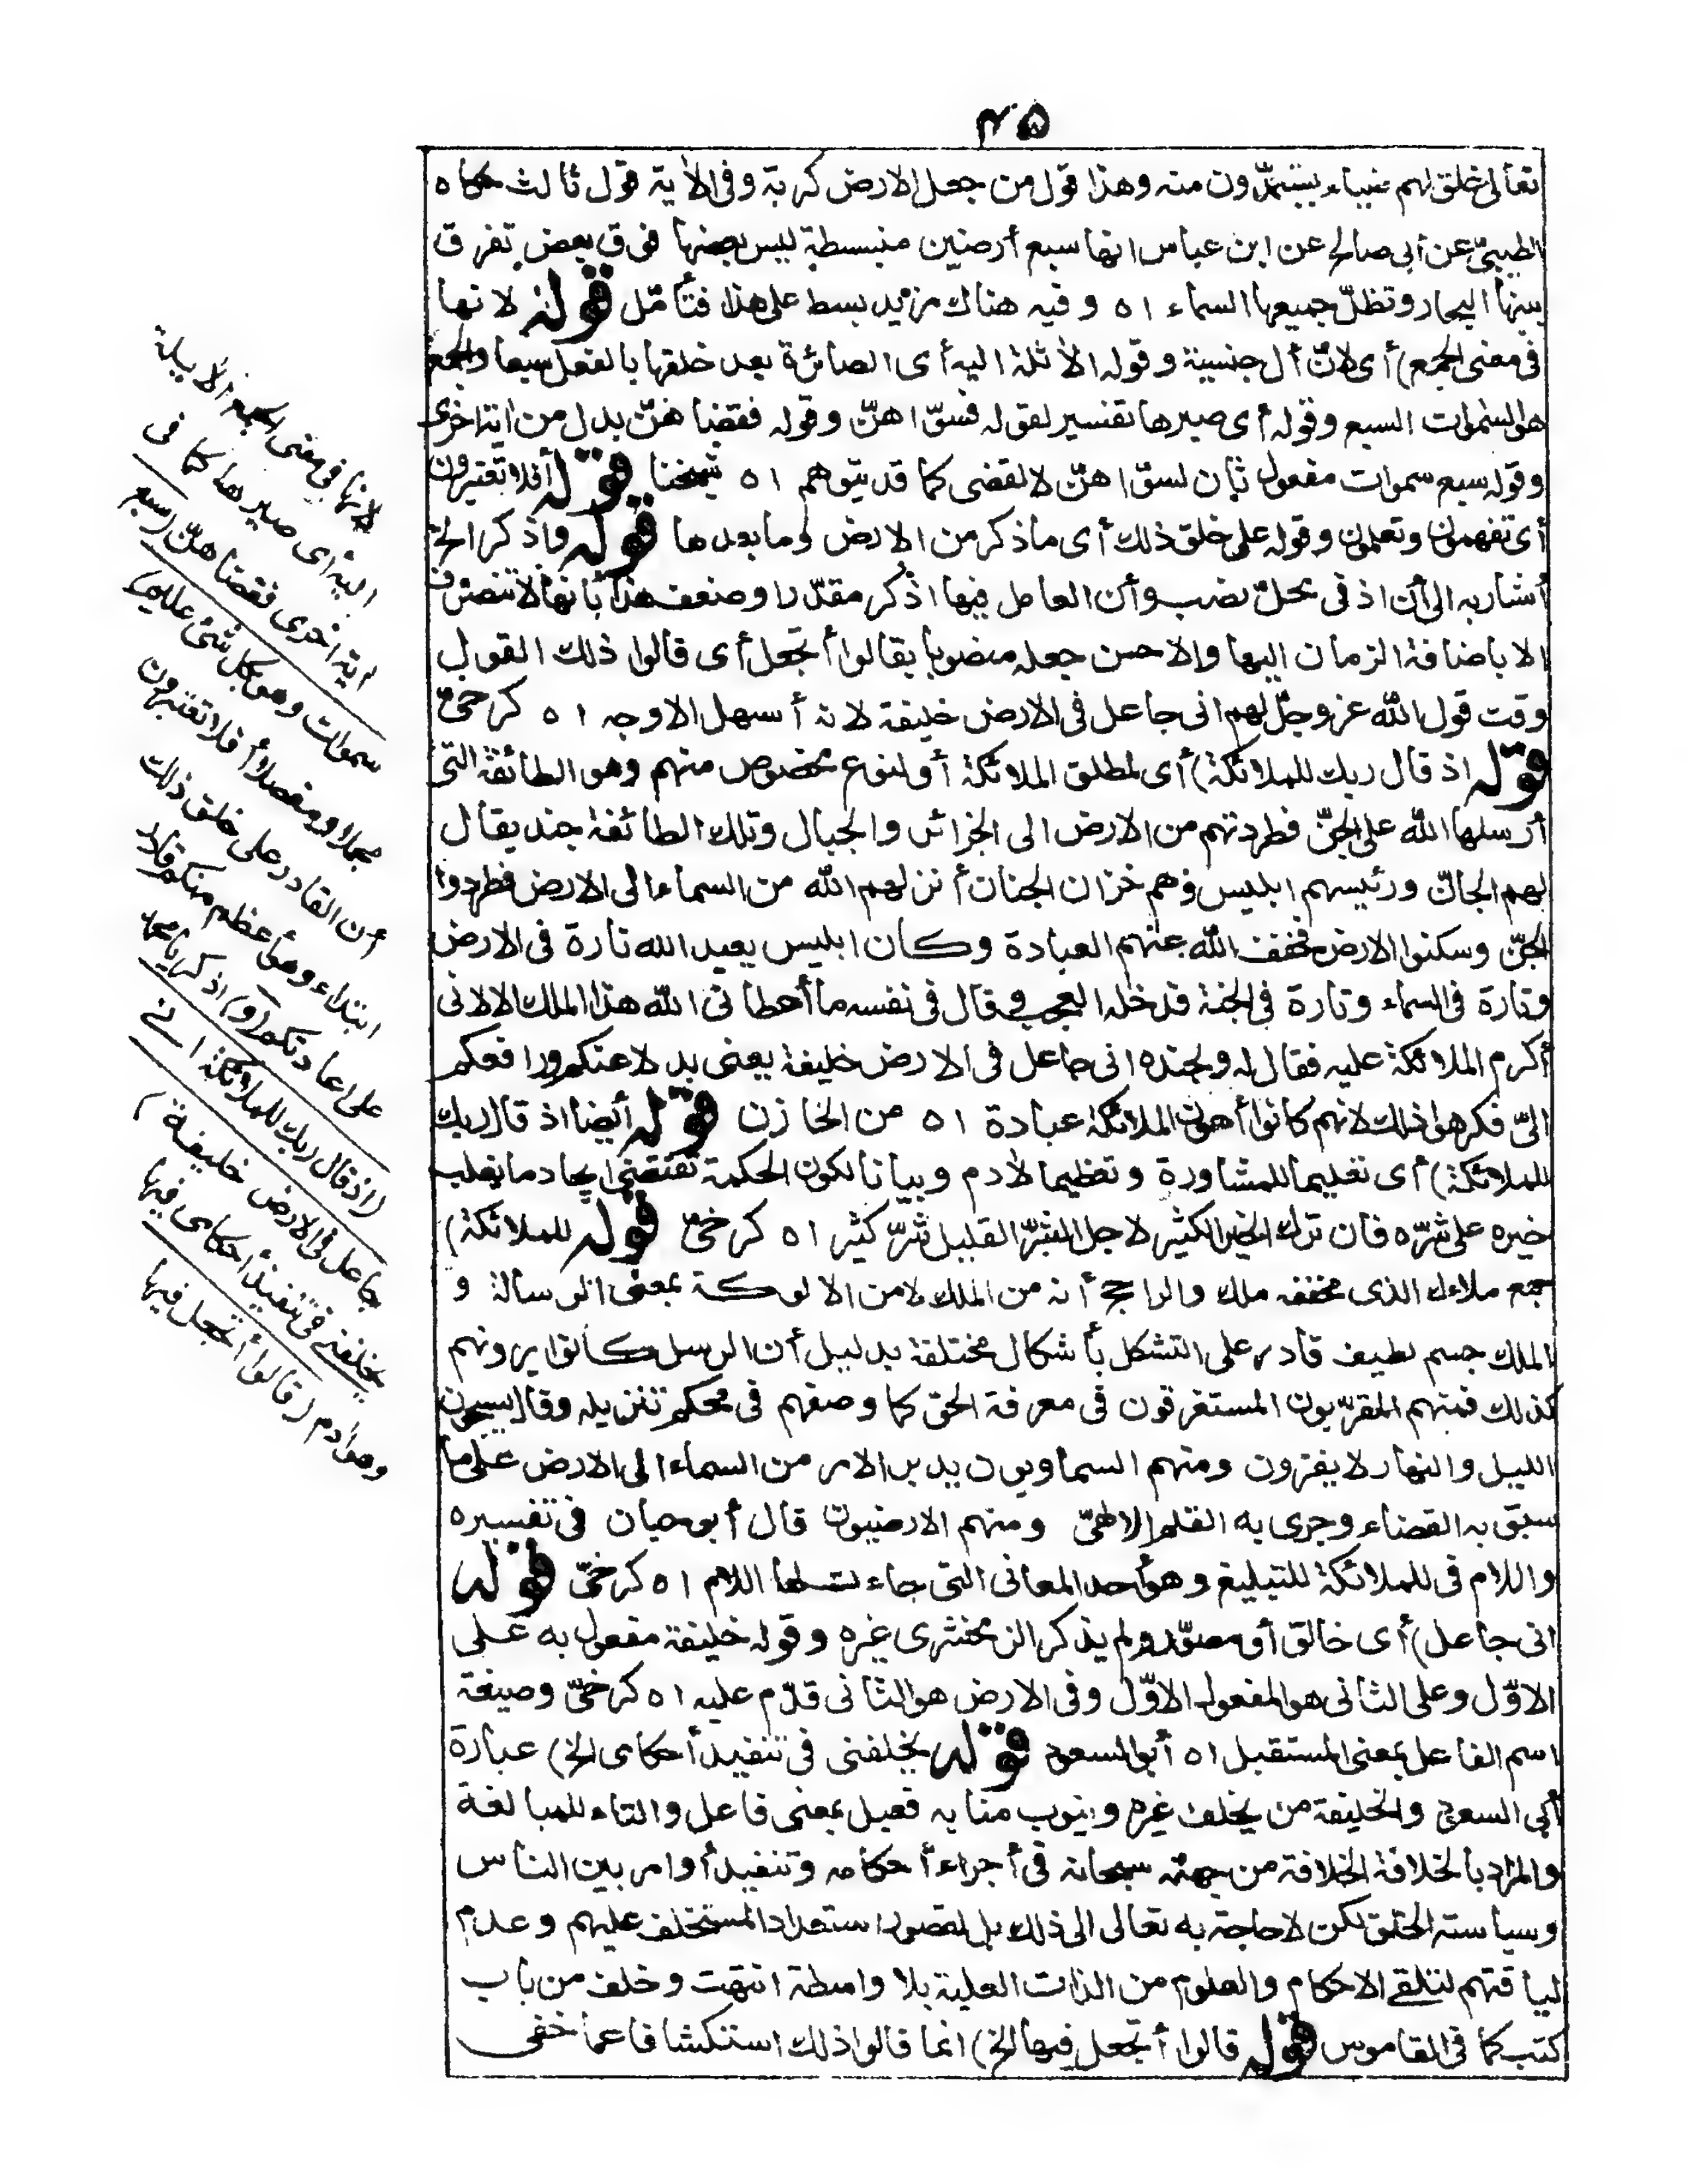 ٤٥
تعالى خلق لهم ضياء يستمدّون منه وهذا قول من جعل الارض كرية وفى الآية قول ثالث حكاه
الطيبىّ عن أبى صالح عن ابن عباس انها سبع أرضين منبسطة ليس بعضها فوق بعض تفرق
بينها البحار وتظلّ جميعها السماء اه وفيه هناك مزيد بسط على هذا فتأمّل قوله لانها
فى معنى الجمع) أى لانّ أل جنسية وقوله الآئلة اليه أى الصائرة بعد خلقها بالفعل سبعا والجمع
هو السموات السبع وقوله أى صيرها تفسير لقوله فسوّاهنّ وقوله فقضاهنّ بدل من آية اخرى
وقوله سبع سموات مفعول ثان لسوّاهنّ لا لقضى كما قد يتوهم اه شيخنا قوله أفلا تعتبرون
أى تفهمون وتعلمون وقوله على خلق ذلك أى ما ذكر من الارض وما بعدها قوله واذكر الخ
أشار به الى أن اذ فى محلّ نصب وأن العامل فيها اذكر مقدّرا وضعف هذا بأنها لا تتصرّف
الا باضافة الزمان اليها والاحسن جعله منصوبا بقالوا أتجعل أى قالوا ذلك القول
وقت قول الله عز وجلّ لهم انى جاعل فى الارض خليفة لانه أسهل الاوجه اه كرخىّ
قوله اذ قال ربك للملائكة) أى لمطلق الملائكة أو لنوع مخصوص منهم وهو الطائفة التى
أرسلها الله على الجنّ فطردتهم من الارض الى الجزائر والجبال وتلك الطائفة جند يقال
لهم الجانّ ورئيسهم ابليس وهم خزان الجنان أنزلهم الله من السماء الى الارض فطردوا
الجنّ وسكنوا الارض فخفف الله عنهم العبادة وكان ابليس يعبد الله تارة فى الارض
وتارة فى السماء وتارة فى الجنة فدخله العجب وقال فى نفسه ما أعطانى الله هذا الملك الا لانى
أكرم الملائكة عليه فقال له ولجنده انى جاعل فى الارض خليفة يعنى بدلا عنكم ورافعكم
الىّ فكرهوا ذلك لانهم كانوا أهون الملائكة عبادة اه من الخازن قوله أيضا اذ قال ربك
للملائكة) أى تعليما للمشاورة وتعظيما لآدم وبيانا لكون الحكمة تقتضى ايجاد ما يغلب
خيره على شرّه فان ترك الخير الكثير لاجل الشرّ القليل شرّ كثير اه كرخىّ قوله للملائكة)
جمع ملأك الذى مخففه ملك والراجح أنه من الملك لا من الالوكة بمعنى الرسالة و
الملك جسم لطيف قادر على التشكل بأشكال مختلفة بدليل أن الرسل كانوا يرونهم
كذلك فمنهم المقرّبون المستغرقون فى معرفة الحق كما وصفهم فى محكم تنزيله وقال يسبحون
الليل والنهار لا يفترون ومنهم السماويون يدبر الامر من السماء الى الارض على ما
سبق به القضاء وجرى به القلم الالهىّ ومنهم الارضيون قال أبو حيان فى تفسيره
واللام فى للملائكة للتبليغ وهو أحد المعانى التى جاءت لها اللام اه كرخىّ قوله
انى جاعل) أى خالق أو مصوّر ولم يذكر الزمخشرى غيره وقوله خليفة مفعول به على
الاوّل وعلى الثانى هو المفعول الاوّل وفى الارض هو الثانى قدّم عليه اه كرخىّ وصيغة
اسم الفاعل بمعنى المستقبل اه أبو السعود قوله يخلفنى فى تنفيذ أحكامى الخ) عبارة
أبى السعود والخليفة من يخلف غيره وينوب منابه فعيل بمعنى فاعل والتاء للمبالغة
والمراد بالخلافة الخلافة من جهته سبحانه فى أجراء أحكامه وتنفيذ أوامر بين الناس
وسياسته الخلق لكن لا حاجة به تعالى الى ذلك بل لقصور استعداد المستخلف عليهم وعدم
لياقتهم لتلقى الاحكام والعلوم من الذات العلية بلا واسطة انتهت وخلف من باب
كتب كما فى القاموس قوله قالوا أتجعل فيها الخ) انما قالوا ذلك استكشافا عما خفى
لانها فى معنى الجمع الآيلة
اليه أى صيرها كما فى
آية اخرى فقضاهنّ (سبع
سموات وهو بكل شئ عليم)
مجملا ومفصلا أفلا تعتبرون
أن القادر على خلق ذلك
ابتداء وهو أعظم منكم قادر
على اعادتكم (و) اذكر يا محمد
(اذ قال ربك للملائكة انى
جاعل فى الارض خليفة)
يخلفنى فى تنفيذ أحكامى فيها
وهو آدم (قالوا أتجعل فيها